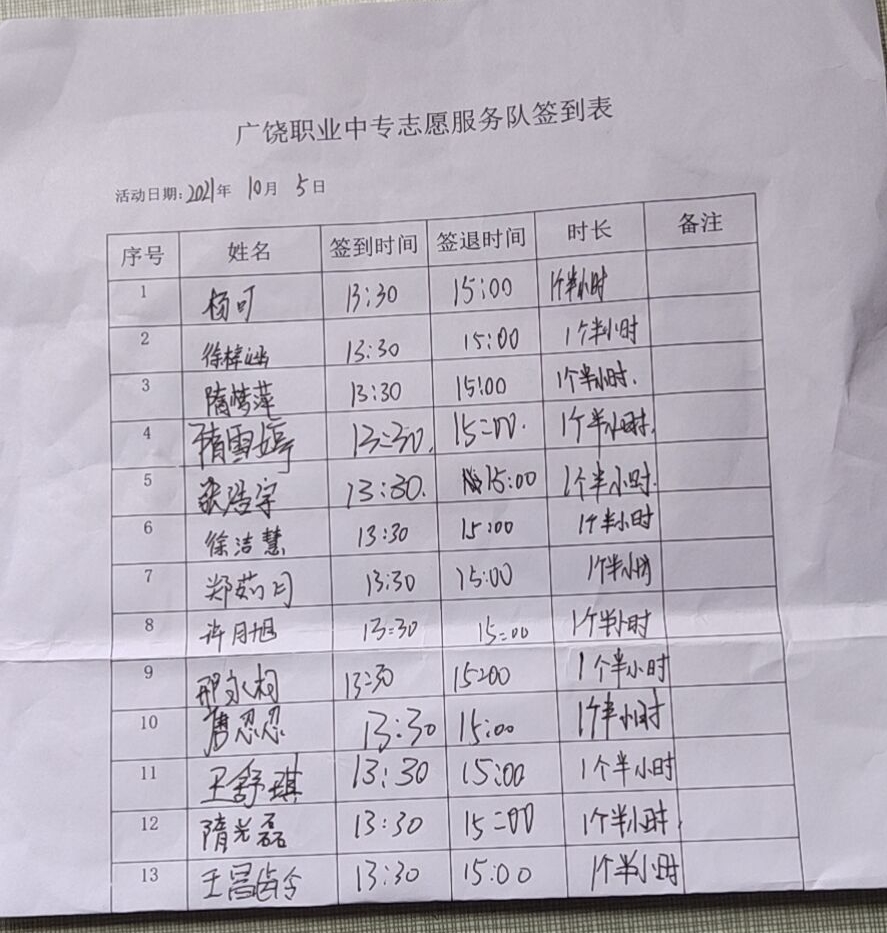 广饶职业中专志愿服务队签到表
活动日期:2021年 10月 5日
序号 姓名 签到时间 签退时间 时长 备注
1 杨可 13:30 15:00 1个半小时
2 徐梓涵 13:30 15:00 1个半小时
3 隋梦萍 13:30 15:00 1个半小时.
4 隋雪婷 13:30. 15:00. 1个半小时.
5 张浩宇 13:30. 15:00 1个半小时.
6 徐洁慧 13:30 15:00 1个半小时
7 郑茹月 13:30 15:00 1个半小时
8 许月旭 13:30 15:00 1个半小时
9 邢永柯 13:30 15:00 1个半小时
10 唐忍忍 13:30 15:00 1个半小时
11 王舒琪 13:30 15:00 1个半小时
12 隋光磊 13:30 15:00 1个半小时.
13 王昌龄 13:30 15:00 1个半小时